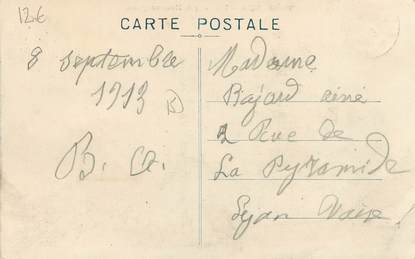 12€
CARTE POSTALE
8 septembre
1913
B. A.
Madame
Bajard ainé
2 Rue de
La Pyramide